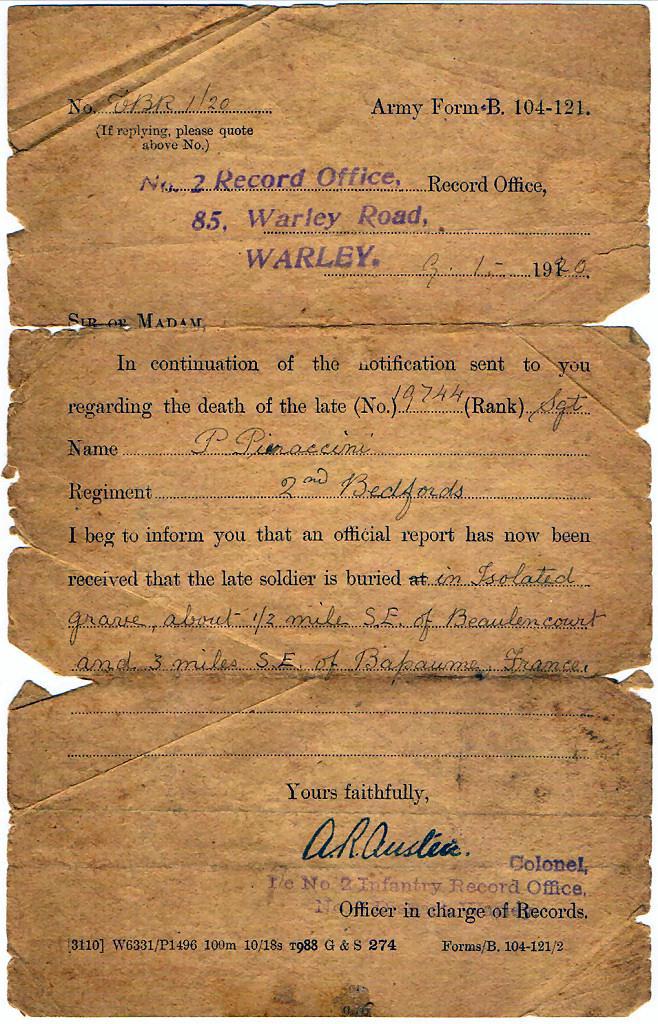 No. EBR 1/20 Army Form B. 104-121.
(If replying, please quote
above No.)
No. 2 Record Office, Record Office,
85, Warley Road,
WARLEY.
9. 1. 1920.
SIR OR MADAM,
In continuation of the notification sent to you
regarding the death of the late (No.) 19744 (Rank) Sgt
Name P Pieraccini
Regiment 2nd Bedfords
I beg to inform you that an official report has now been
received that the late soldier is buried at in Isolated
grave, about 1/2 mile S.E. of Beaulencourt
and 3 miles S.E. of Bapaume, France.
Yours faithfully,
A.R. Austen.
Colonel,
I/c No 2 Infantry Record Office,
Officer in charge of Records.
[3110] W6331/P1496 100m 10/18s T988 G & S 274 Forms/B. 104-121/2